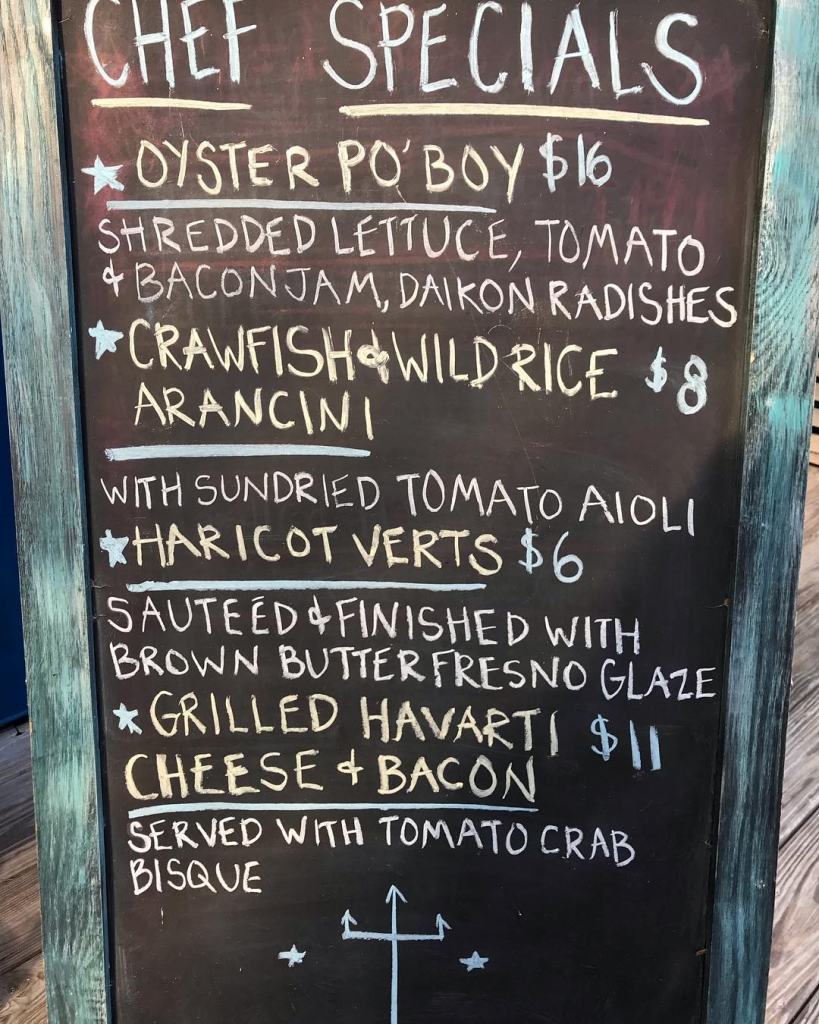 CHEF SPECIALS
OYSTER PO'BOY $16
SHREDDED LETTUCE, TOMATO
& BACON JAM, DAIKON RADISHES
CRAWFISH & WILD RICE $8
ARANCINI
WITH SUNDRIED TOMATO AIOLI
HARICOT VERTS $6
SAUTEÉD & FINISHED WITH
BROWN BUTTER FRESNO GLAZE
GRILLED HAVARTI $11
CHEESE & BACON
SERVED WITH TOMATO CRAB
BISQUE